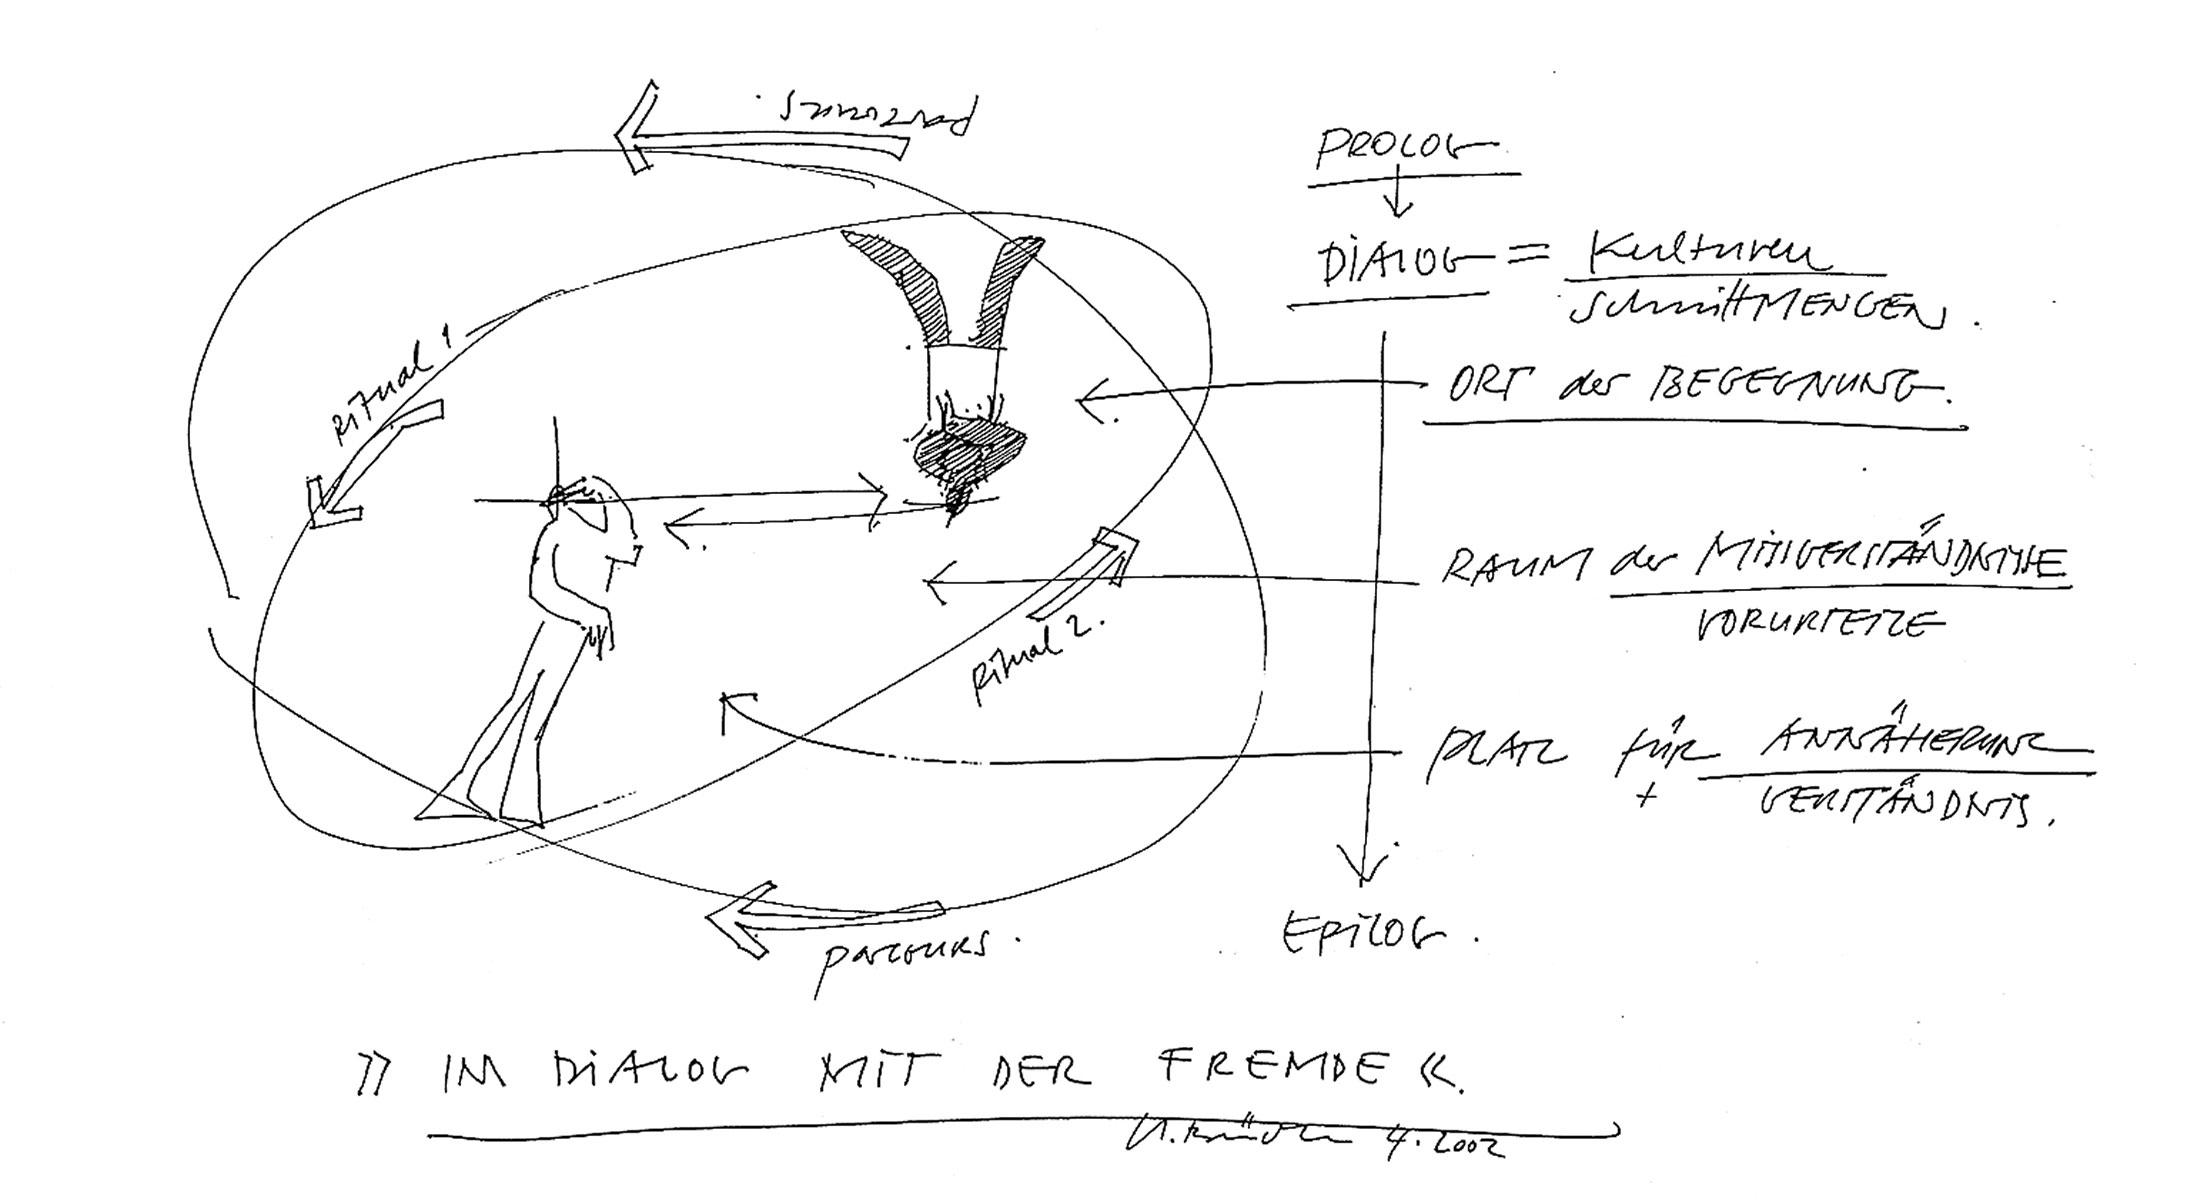 parcours.
Ritual 1
Ritual 2.
parcours.
PROLOG
DiALOG = Kulturen
SchnittMENGEN.
ORT der BEGEGNUNG.
RAUM der MISSVERSTÄNDNISSE
VORURTEILE
PLATZ für ANNÄHERUNG
+ VERSTÄNDNIS.
EpiLOG.
» IM DiALOG MIT DER FREMDE «.
4.2002